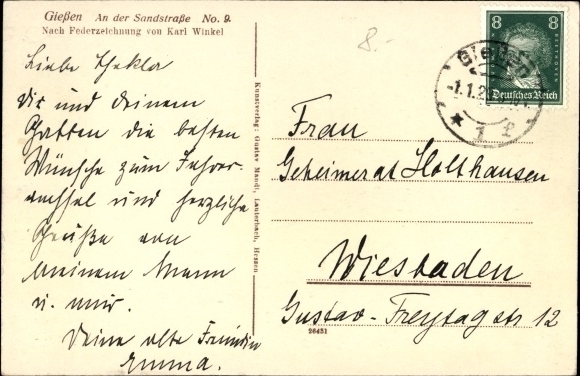 Gießen An der Sandstraße No. 9.
Nach Federzeichnung von Karl Winkel
8.-
Liebe Thekla
Dir und deinem
Gatten die besten
Wünsche zum Jahres-
wechsel und herzliche
Grüße von
meinem Mann
u. mir.
Deine alte Freundin
Emma.
Kunstverlag: Gustav Mandt, Lauterbach, Hessen
8 8
BEETHOVEN
Deutsches Reich
Gießen
-1.1.2
* 1 f
Frau
Geheimerat Holthausen
Wiesbaden
Gustav-Freytagstr 12
26451